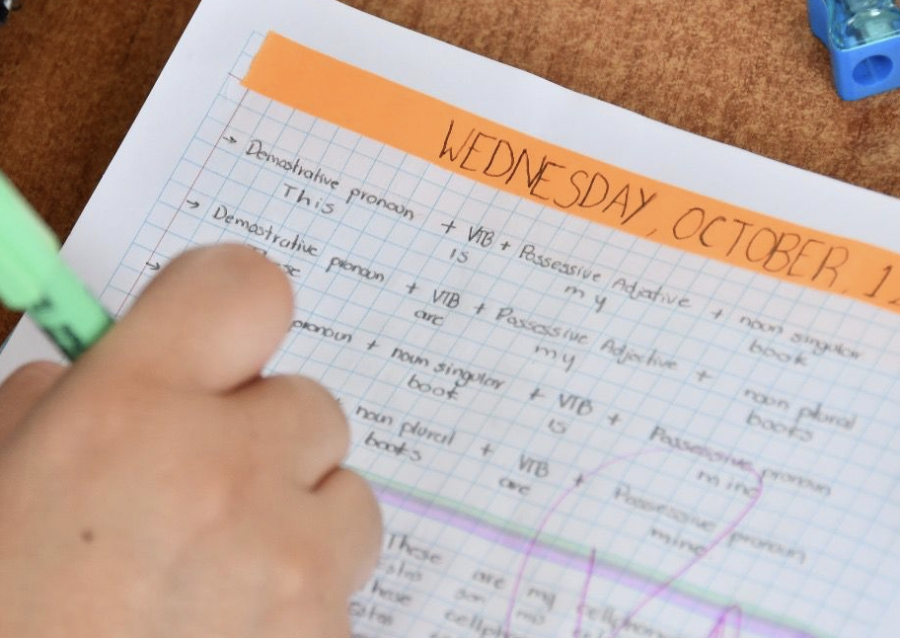 WEDNESDAY, OCTOBER, 1
→ Demostrative pronoun + VTB + Possessive Adjetive + noun singular
This is my book
→ Demostrative pronoun + VTB + Possessive Adjective + noun plural
are my books
→ pronoun + noun singular + VTB + Possessive pronoun
book is mine
noun plural + VTB + Possessive pronoun
books are mine
These are my
Estos son mis